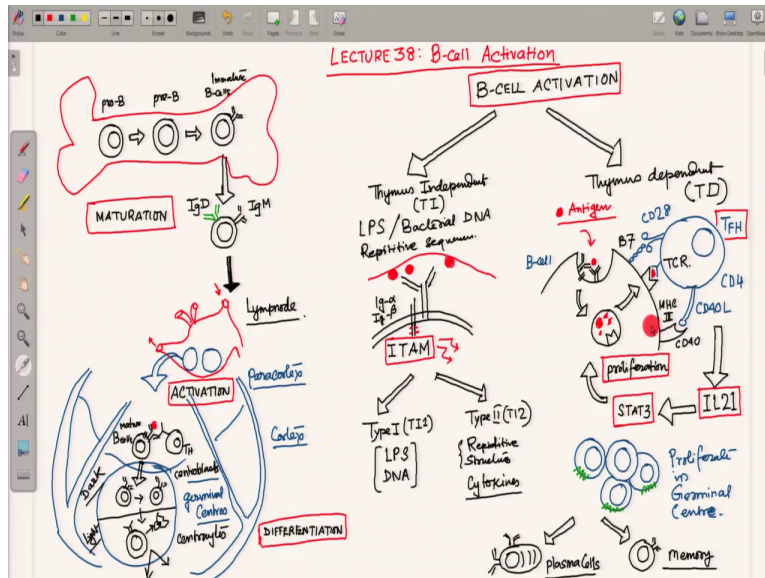 Stylus
Color
Line
Eraser
Backgrounds
Undo
Redo
Pages
Previous
Next
Erase
Board
Web
Documents
Show Desktop
OpenBoard
LECTURE 38: B-cell Activation
B-CELL ACTIVATION
pro-B
pre-B
Immature
B-cells
MATURATION
IgD
IgM
Lymphnode.
ACTIVATION
Paracortex
Cortex
mature
B cells
TH
Dark
centroblasts
germinal
Centres
light
centrocytes
DIFFERENTIATION
Thymus Independent
(TI)
LPS / Bacterial DNA
Repititive sequences.
Ig-α
Ig-β
ITAM
Type I (TI1)
LPS
DNA
Type II (TI2)
Repeditive
Structures
Cytokines
Thymus dependent
(TD)
Antigen
CD28
TFH
B7
B-cell
TCR.
CD4
MHC
II
CD40L
CD40
proliferation
STAT3
IL21
Proliferate
in
Germinal
Centre.
plasma Cells
memory